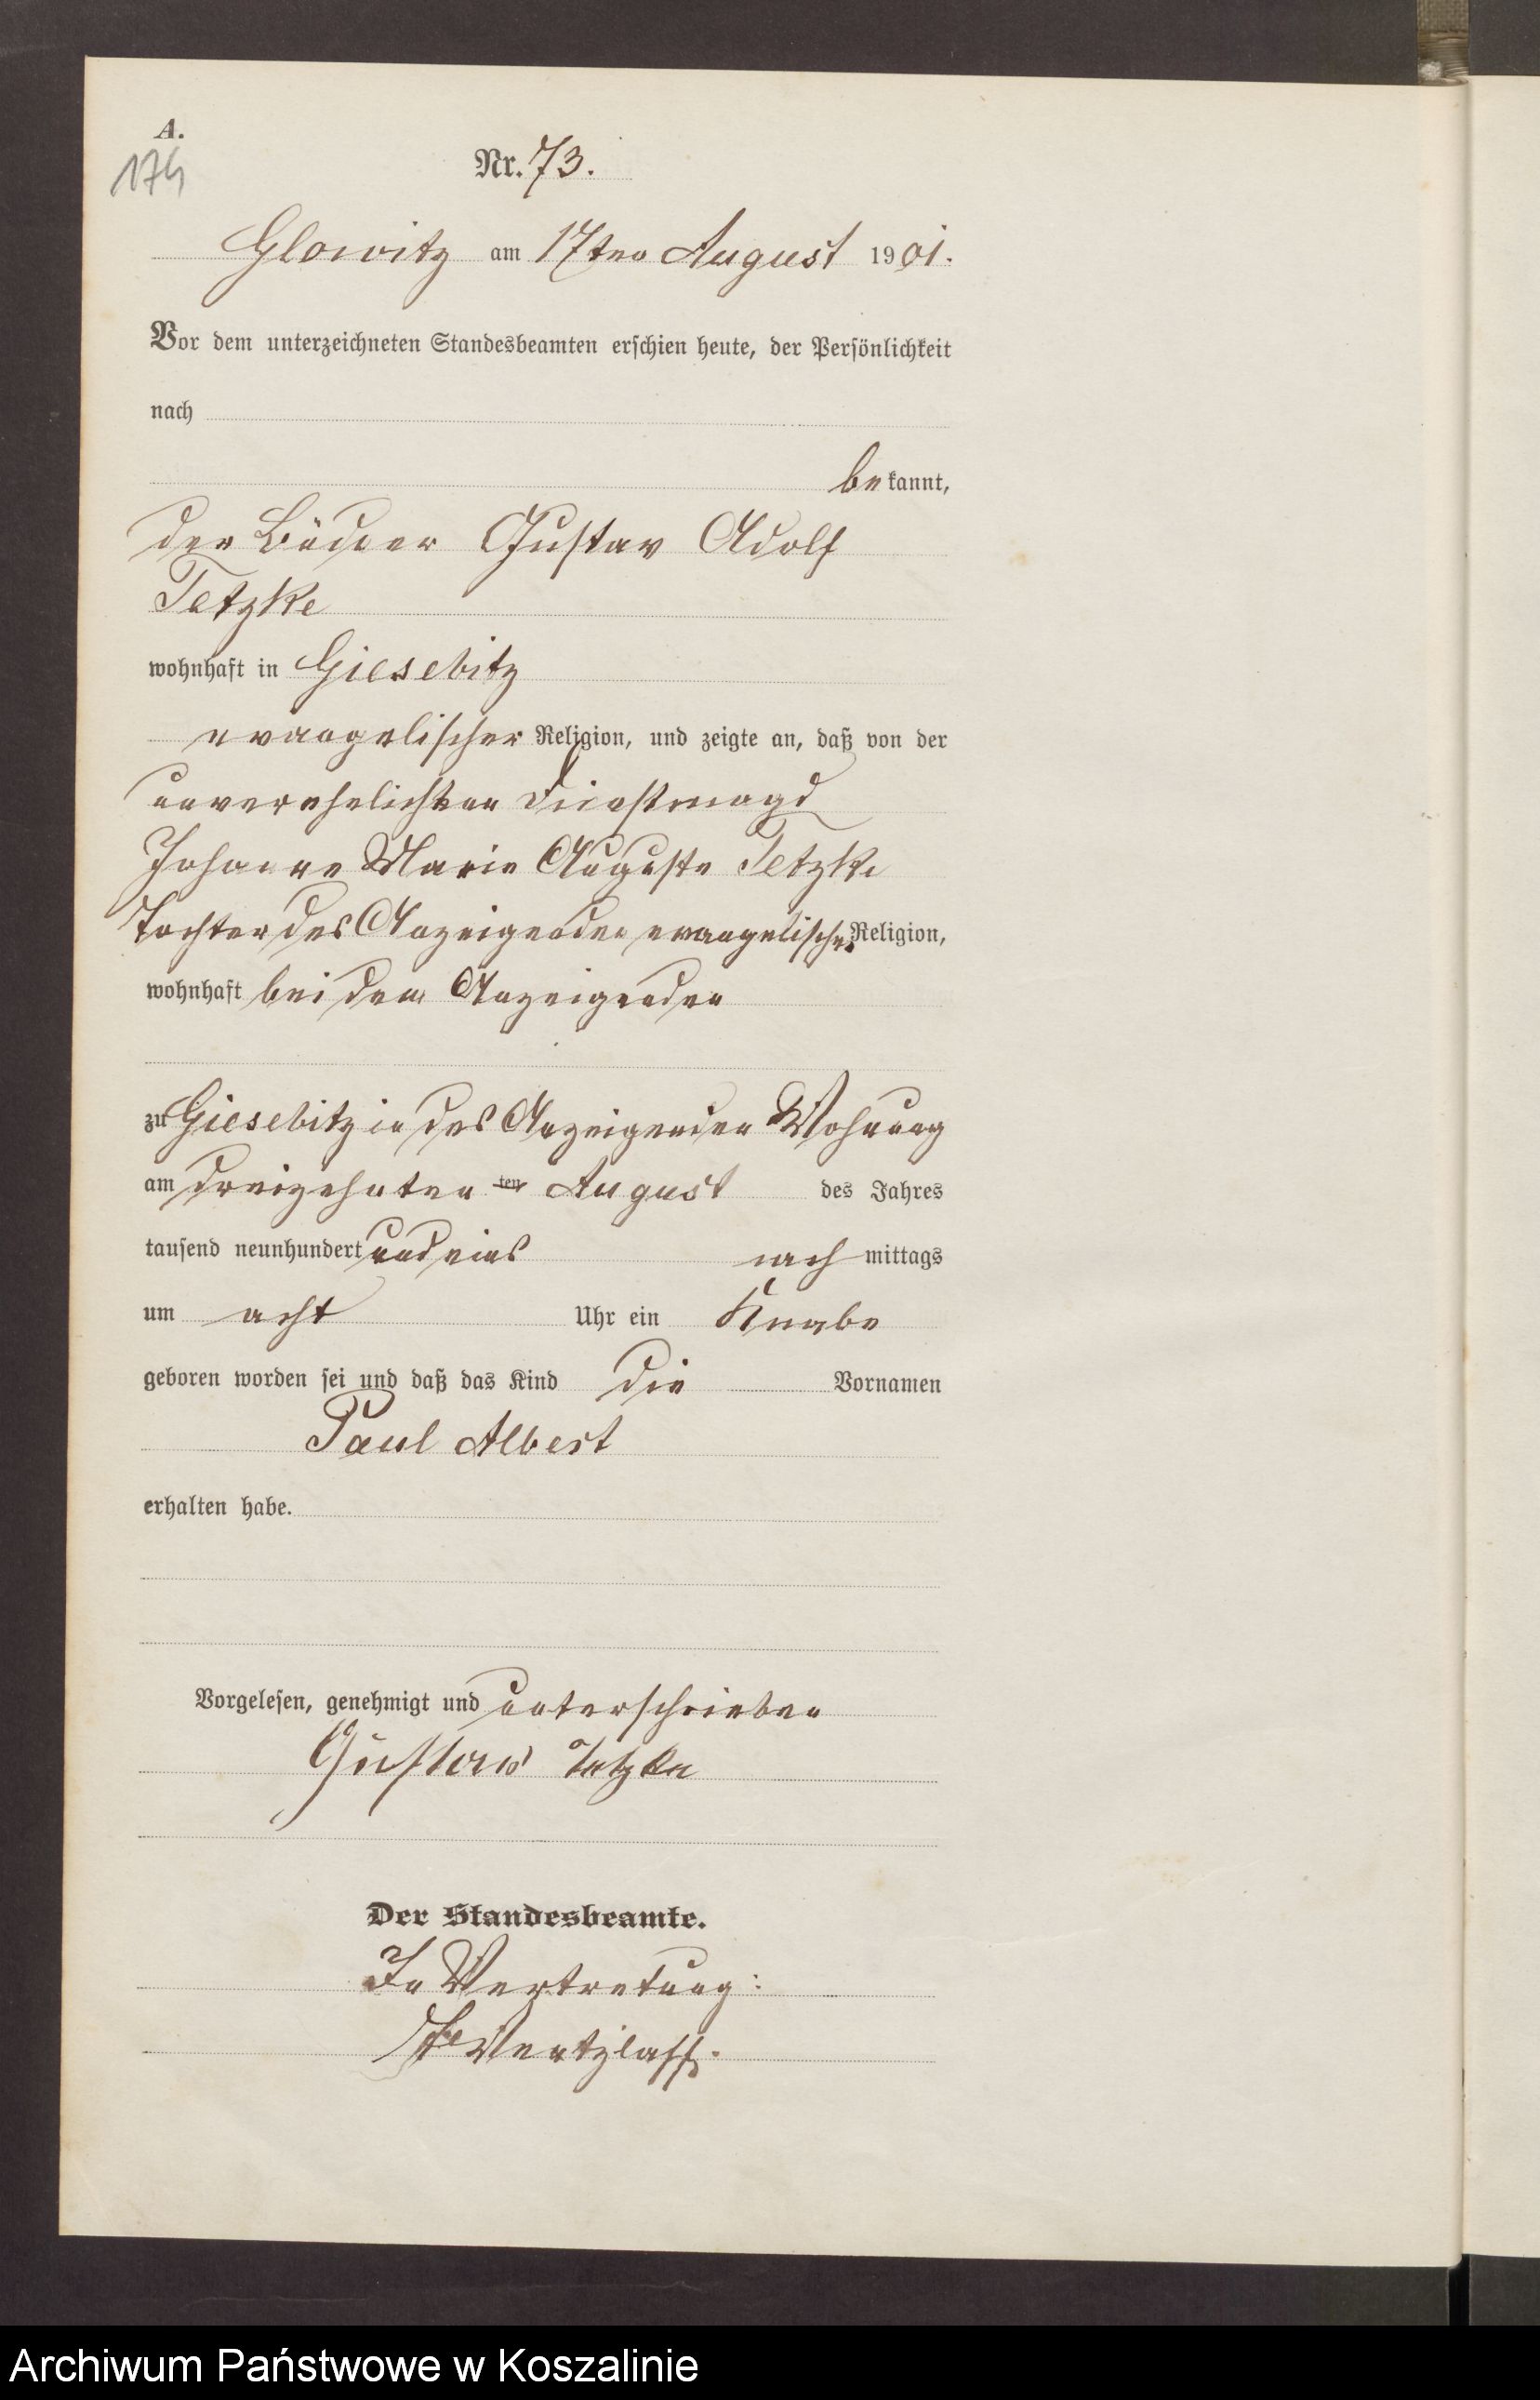 A.
174
Nr. 73.
Glowitz am 17ten August 1901.
Vor dem unterzeichneten Standesbeamten erschien heute, der Persönlichkeit
nach
bekannt,
der Büdner Gustav Adolf
Tetzke
wohnhaft in Giesebitz
evangelischer Religion, und zeigte an, daß von der
unverehelichten Dienstmagd
Johanne Marie Auguste Tetzke
Tochter des Anzeigenden evangelischer Religion,
wohnhaft bei dem Anzeigenden
zu Giesebitz in des Anzeigenden Wohnung
am dreizehnten ten August des Jahres
tausend neunhundert und eins nach mittags
um acht Uhr ein Knabe
geboren worden sei und daß das Kind die Vornamen
Paul Albert
erhalten habe.
Vorgelesen, genehmigt und unterschrieben
Gustav Tetzke
Der Standesbeamte.
In Vertretung:
Wentzlaff.
Archiwum Państwowe w Koszalinie